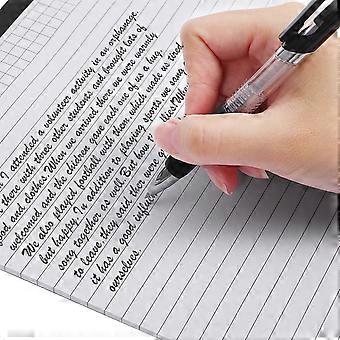 I attended a volunteer activity in an orphanage.
there with three other students and brought lots of
food, and clothes. When we arrived there we were warmly
welcomed, and the children gave each one of us a hug.
We also played football with them, which made us tired
but happy. In addition to playing sports, we sang
song together as well. But how When
to leave, they said, they were
it has a good influ
ourselves.